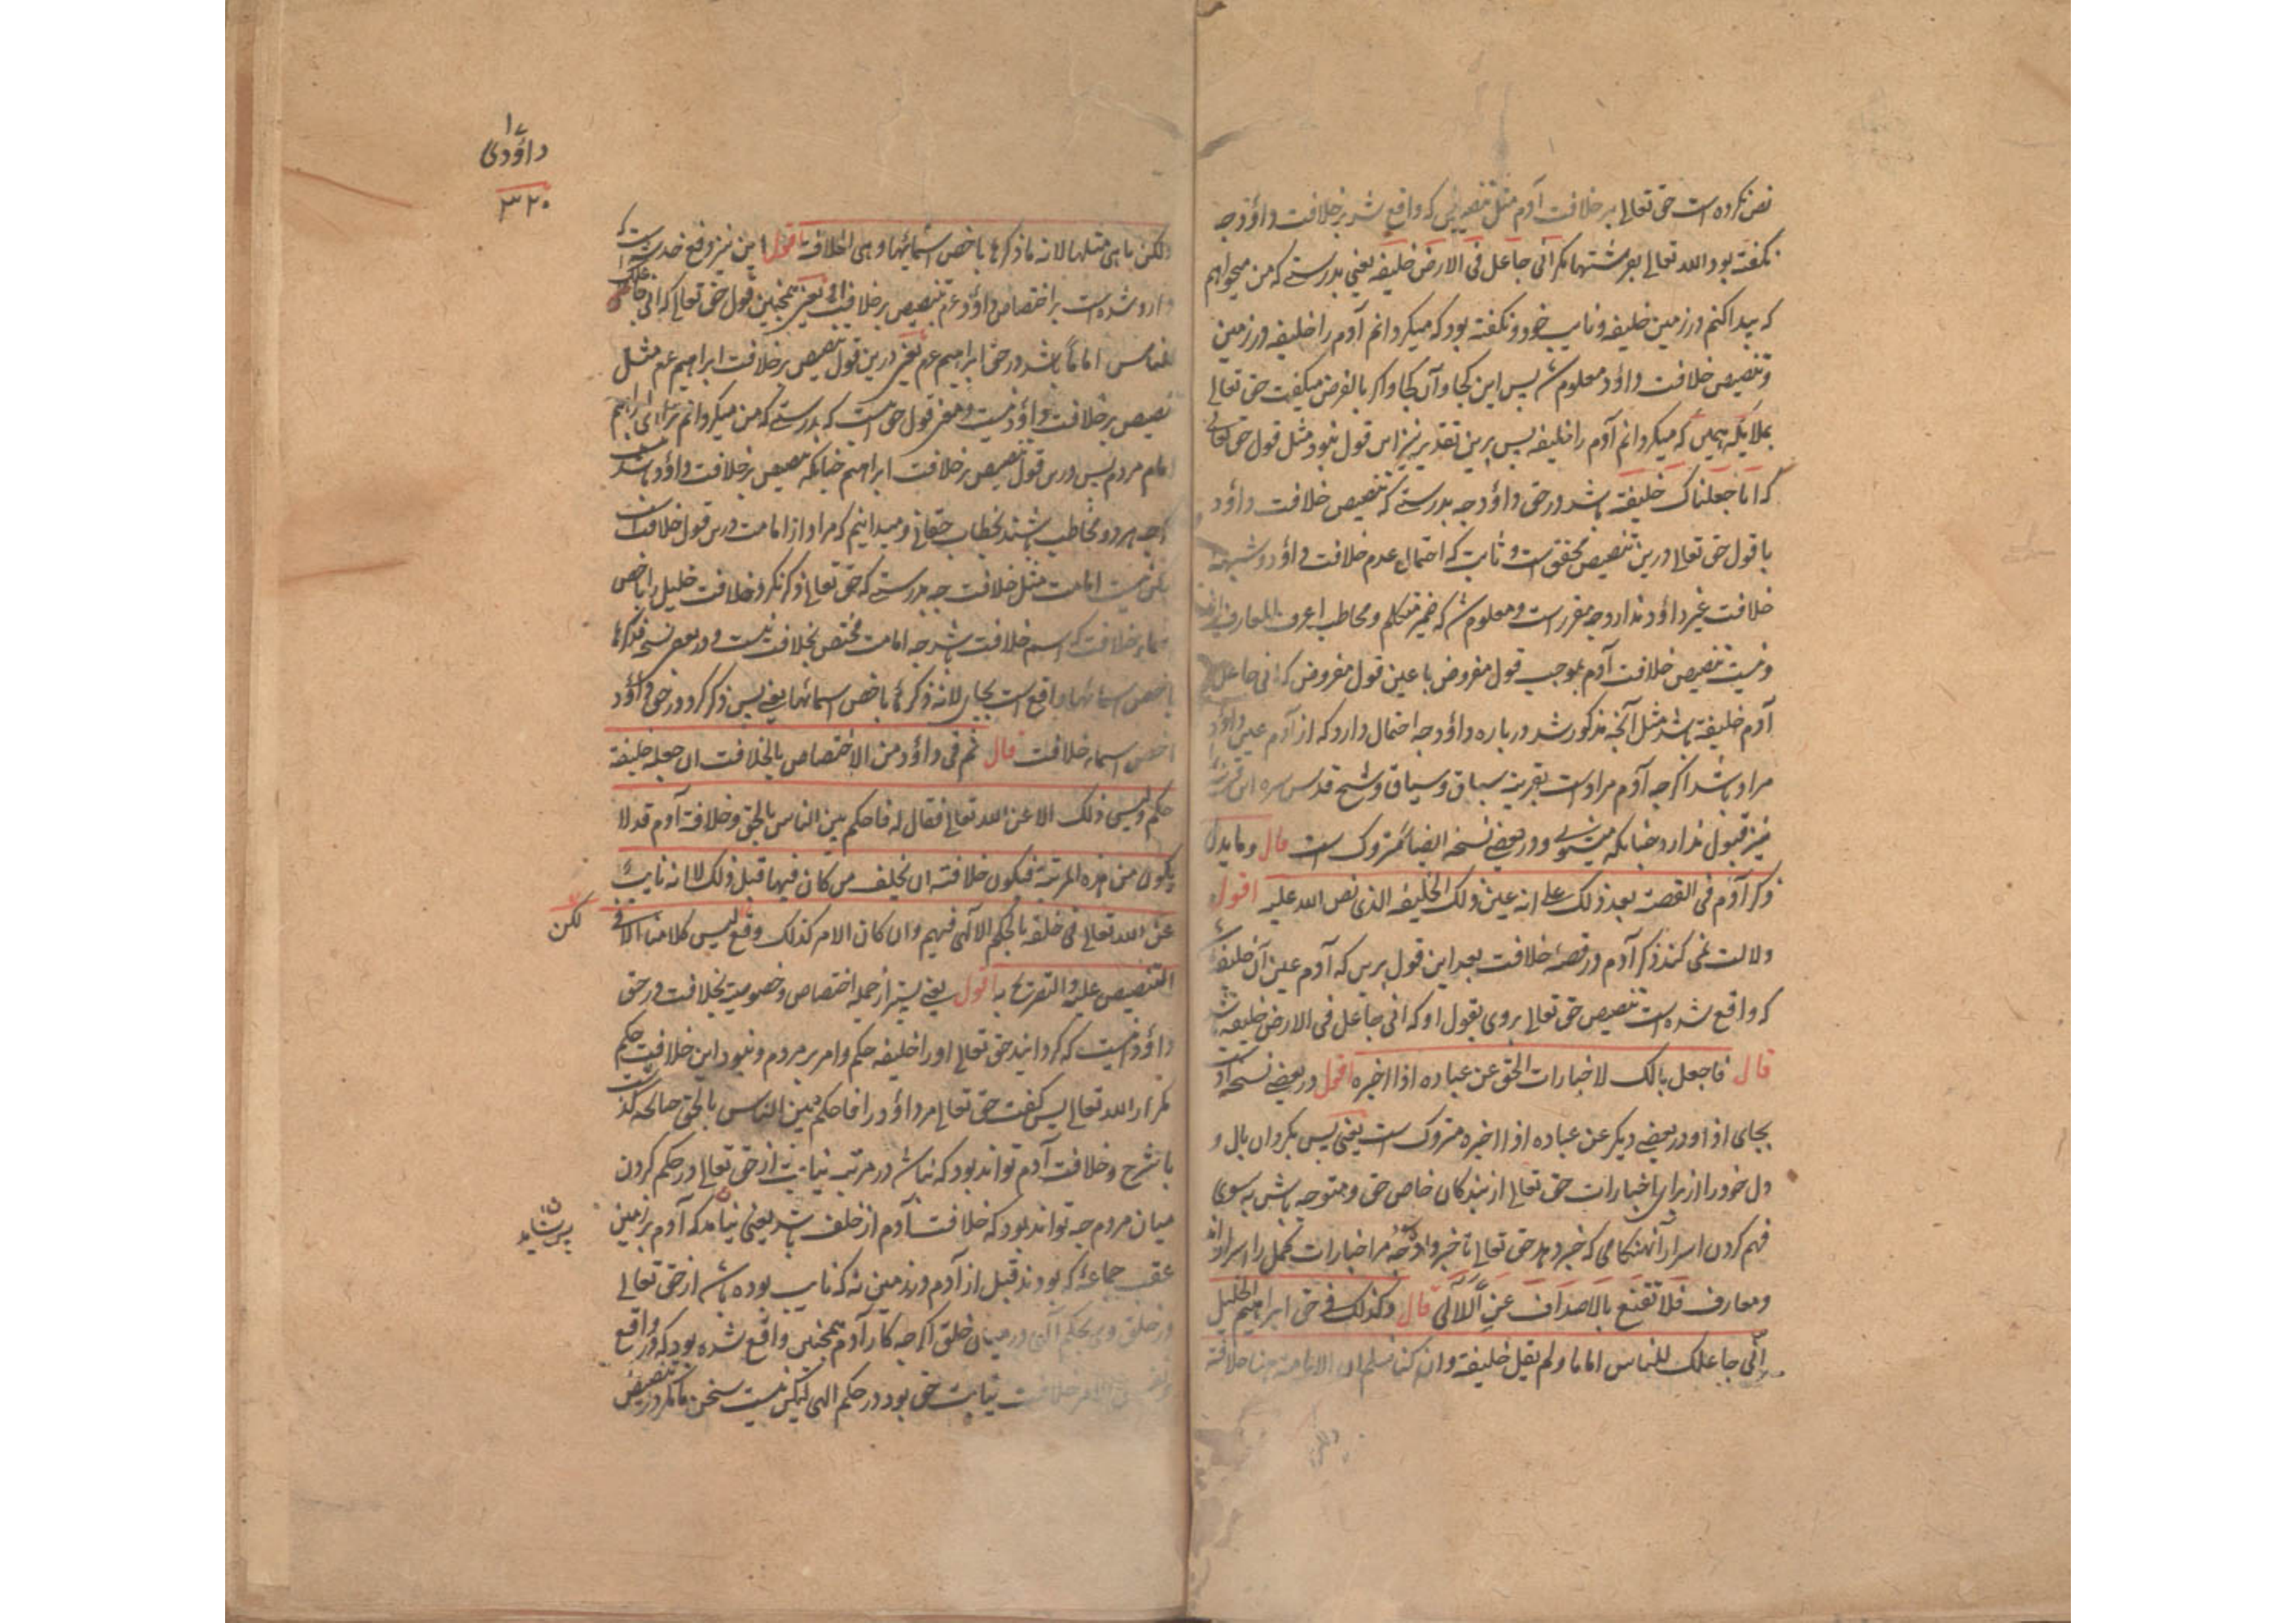 نص نکرده است حق تعالی بر خلافت آدم مثل تنصیصی که واقع شد بر خلافت داؤد چه
نگفته بود الله تعالی بفرشتها مگر انی جاعل فی الارض خلیفه یعنی بدرستے که من میخواهم
که پیدا کنم در زمین خلیفه و نایب خود و نگفته بود که میگردانم آدم را خلیفه در زمین
و تنصیص خلافت داؤد معلوم شد پس این کجا و آن کجا و اگر بالفرض میگفت حق تعالی
بملایکه همین که میگردانم آدم را خلیفه پس برین تقدیر نیز این قول نبود مثل قول حق تعالی
که انا جعلناک خلیفة باشد در حق داؤد چه بدرستے که تنصیص خلافت داؤد
با قول حق تعالی درین تنصیص محقق است و ثابت که احتمال عدم خلافت داؤد و شبهه
خلافت غیر داؤد ندارد چه مقرر است و معلوم شد که ضمیر متکلم و مخاطب اعرف المعارف اند
و نیست تنصیص خلافت آدم بموجب قول مفروض با عین قول مفروض که انی جاعل
آدم خلیفة باشد مثل آنچه مذکور شد در باره داؤد چه احتمال دارد که از آدم عین داؤد
مراد باشد اگرچه آدم مراد است بقرینه سباق و سیاق و شیخ قدس سره این قرینه
نیز قبول ندارد چنانکه میشنوی و در بعضے نسخه ایضا متروک است قال و ما یدل
ذکر آدم فی القصة بعد ذلک علی انه عین ذلک الخلیفة الذی نص الله علیه اقول
دلالت نمی کند ذکر آدم در قصۀ خلافت بعد این قول برین که آدم عین آن خلیفه
که واقع شده است تنصیص حق تعالی بر وی بقول او که انی جاعل فی الارض خلیفة باشد
قال فاجعل بالک لاخبارات الحق عن عباده اذا اخبره اقول در بعضے نسخه اذ است
بجای اذا و در بعضے دیگر عن عباده اذا اخبره متروک است یعنی پس بگردان بال و
دل خود را از برای اخبارات حق تعالی از بندگان خاص حق و متوجه باش بسوی
فهم کردن اسرار آن هنگامی که خبر دهد حق تعالی تا خبر دار شوی چه مر اخبارات کمل را اسرار اند
و معارف فلا تقنع بالاصداف عن اللآلی قال و کذلک فی حق ابراهیم الخلیل
انی جاعلک للناس اماما و لم یقل خلیفة و ان کنا نعلم ان الامامة هنا خلافة
ولکن
۱۷
داؤدی
۳۲۰
ولکن ما هی مثلها لانه ما ذکرها باخص اسمائها و هی الخلافة اقول این نیز دفع خدشه است که
وارد شده است بر اختصاص داؤد عم بتنصیص بر خلافت او یعنی همچنین قول حق تعالی که انی جاعلک
للناس اماما باشد در حق ابراهیم عم یعنی درین قول تنصیص بر خلافت ابراهیم عم مثل
تنصیص بر خلافت داؤد نیست و معنی قول حق اینست که بدرستے که من میگردانم مر ترا ای ابراهیم
امام مردم پس درین قول تنصیص بر خلافت ابراهیم چنانکه تنصیص بر خلافت داؤد باشد نیست
اگرچه هر دو مخاطب باشند بخطاب حقتعالی و میدانیم که مراد از امامت درین قول خلافت است
لکن نیست امامت مثل خلافت چه بدرستے که حق تعالی ذکر نکرد خلافت خلیل را باخص
اسماء خلافت که اسم خلافت باشد چه امامت مختص بخلافت نیست و در بعض نسخه فذکرها
باخص اسمائها واقع است بجای لانه ذکرها باخص اسمائها یعنی پس ذکر کرد در حق داؤد
اخص اسماء خلافت قال ثم فی داؤد من الاختصاص بالخلافت ان جعله خلیفة
حکم و لیس ذلک الا عن الله تعالی فقال له فاحکم بین الناس بالحق و خلافة آدم قد لا
یکون من هذه المرتبة فیکون خلافته ان یخلف من کان فیها قبل ذلک لا انه نایب
عن الله تعالی فی خلقه بالحکم الالهی فیهم و ان کان الامر کذلک وقع لیس کلامنا الا فی
لکن
التنصیص علیه و التصریح به اقول یعنی پستر از جمله اختصاص و خصوصیت بخلافت در حق
داؤد اینست که گردانید حق تعالی او را خلیفه حکم و امر بر مردم و نبود این خلافت حکم
مگر از الله تعالی پس گفت حق تعالی مر داؤد را فاحکم بین الناس بالحق چنانچه گذشت
با شرح و خلافت آدم تواند بود که نباشد در مرتبه نیابت از حق تعالی در حکم کردن
میان مردم چه تواند بود که خلافت آدم از خلف باشد یعنی نیامد که آدم بر زمین
پس شاید
عقب جماعۀ که بودند قبل از آدم در زمین نه که نایب بوده باشد از حق تعالی
در خلق وی بحکم الهی در میان خلق اگرچه کار آدم همچنین واقع شده بود که در واقع
خلافت نیابت حق بود در حکم الهی لیکن نیست سخن ما مگر در تنصیص